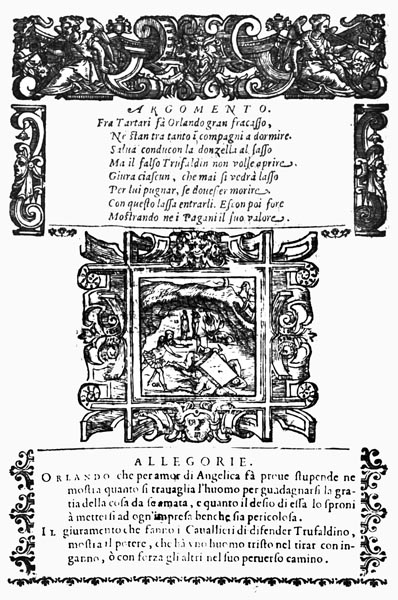 ARGOMENTO.
Fra Tartari fà Orlando gran fracasso,
Ne stan tra tanto i cõpagni a dormire.
Salua conducon la donzella al sasso
Ma il falso Trufaldin non volse aprire.
Giura ciascun, che mai si vedrà lasso
Per lui pugnar, se douesse morire
Con questo lassa entrarli. Escon poi fore
Mostrando ne i Pagani il suo valore.
ALLEGORIE.
ORLANDO che per amor di Angelica fà proue stupende ne
mostra quanto si trauaglia l'huomo per guadagnarsi la gra-
tia della cosa da se amata, e quanto il desio di essa lo sproni
à mettersi ad ogn'impresa benche sia pericolosa.
IL giuramento che fanno i Cauallieri di difender Trufaldino,
mostra il potere, che hà vno huomo tristo nel tirar con in-
ganno, ò con forza gli altri nel suo peruerso camino.